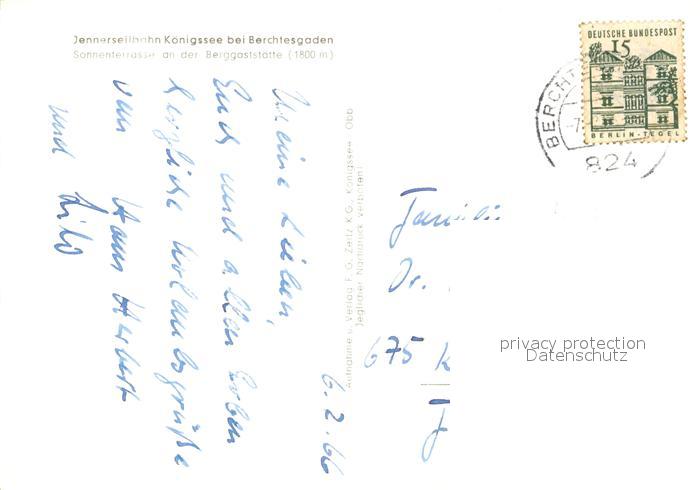 Jennerseilbahn Königssee bei Berchtesgaden
Sonnenterrasse an der Berggaststätte (1800 m)
6.2.66
Meine Lieben,
Euch und allen Lieben
herzliche Urlaubsgrüße
von Hans Herbert
und Lilo
Aufnahme u. Verlag F. G. Zeitz K.G., Königssee Obb
Jeglicher Nachdruck verboten!
DEUTSCHE BUNDESPOST
15
BERLIN-TEGEL
BERCHT
824
Familie
Dr.
675 K
privacy protection
Datenschutz